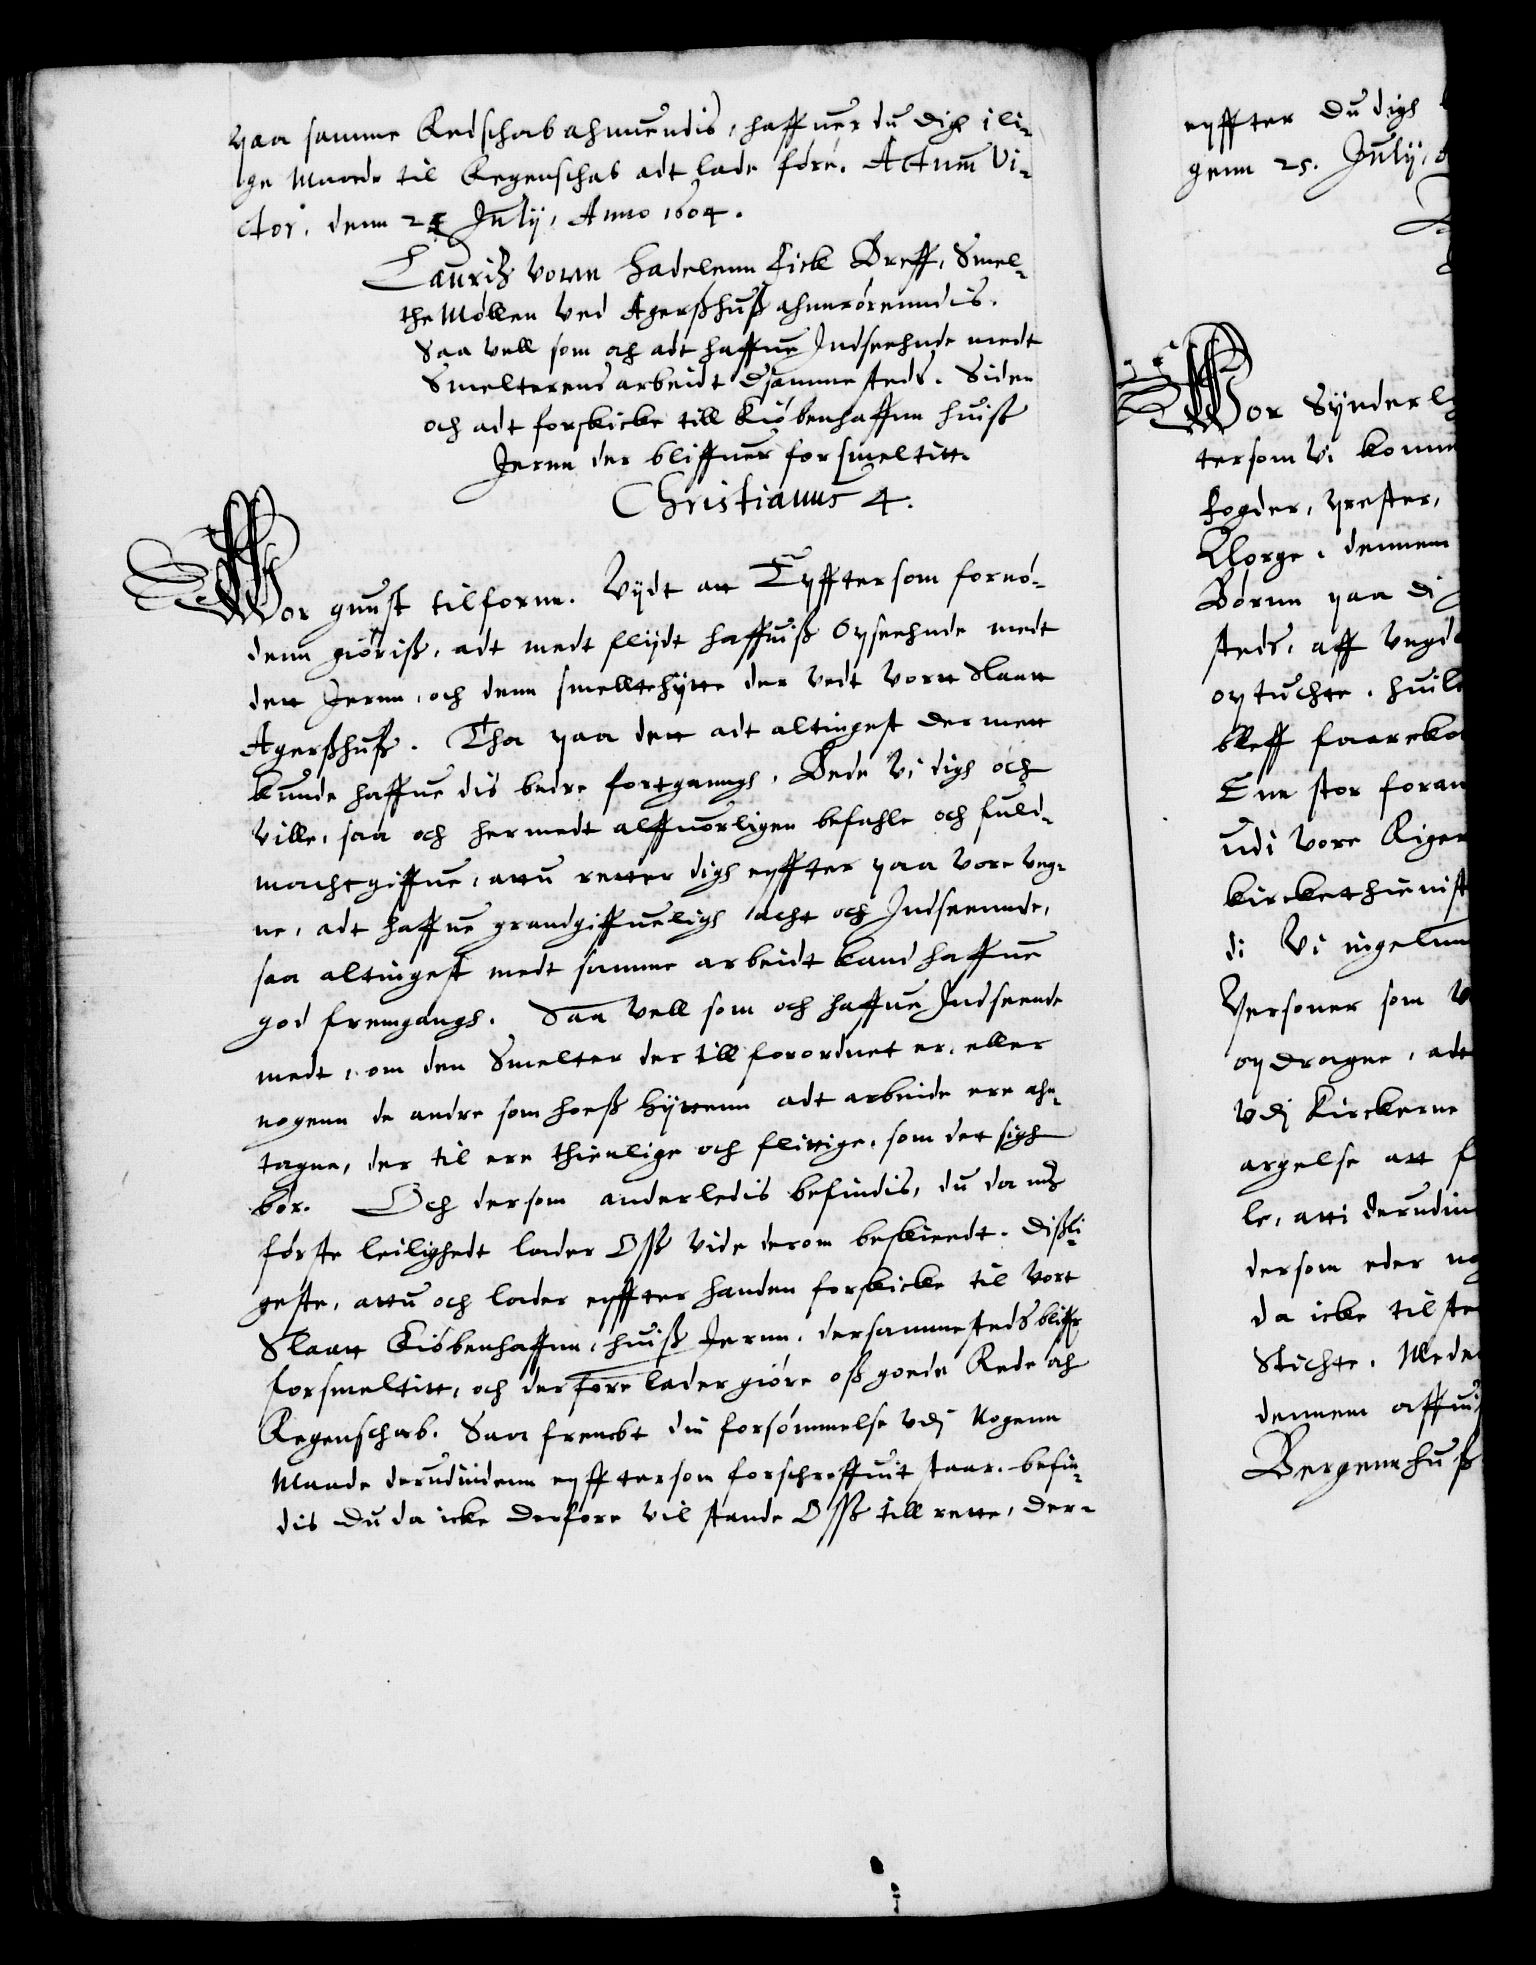 paa samme Redschab ahnuendis, haffuer du dig i li-
ge Maade til Regenschab adt lade føre. Actum Vi-
ctor. denn 25 Julij, Anno 1604.
Lauritz vonn Hadelenn Fick Breff, Smel-
the Møllen ved Agerßhuß ahnrørenndis.
Saa vell som och adt haffue Indseehnde medt
Smelterens arbeidt dsammesteds. Siden
och adt forskicke till Kiøbenhaffnn huiß
Jernn der bliffuer forsmeltitt.
Christianus 4.
Vor gunst tilfornn. Vijdt att Epfftersom fornø-
denn giøriß, adt medt flijdt haffuiß Opseehnde medt
dett Jernn, och denn smelltehytte der vedt vortt Slaatt
Agerßhuß. Tha paa dett adt altingest der mett
kunde haffue dis bedre fortganngh. Bede Vi digh och
ville, saa och hermedt alffuorligen befahle och fuld-
machtgiffue, attu retter digh epffter paa vore veg-
ne, adt haffue grandgiffueligh acht och Indseennde,
saa altingest medt samme arbeidt kand haffue
god fremgangh. Saa vell som och haffue Indseende
medt, om den Smelter der till forordnet er, eller
nogenn de andre som hoeß Hyttenn adt arbeide ere ahn-
tagne, der til ere thienlige och flittige, som det sigh
bør. Och dersom anderledis befindis, du da mz
første leilighedt lader Oss vide derom beskeedt. Dißli-
geste, attu och lader epffter handen forskicke til Vort
Slaatt Kiøbenhaffnn, huiß Jernn, dersammesteds bliffr
forsmeltitt, och derfore lader giøre oß goede Rede och
Regenschab. Saa frembt din forsømmelse vdj Nogenn
Maade derudindenn epfftersom forschreffuit staar, befin-
dis Du da icke Derfore vil stande Oss till rette, Der-
epffter Du digh
genn 25. Julij,
Vor Synderl
tersom Vi komm
fogder, prester,
Norge, dennem
Børnn paa di
steds, aff vngd
optuchte, huil
bleff faareko
Enn stor foran
udi Vore Riger
kirckethienist
di Vi ingelun
Personer som v
opdragne, adt
vdj Kirckerne
argelse att f
le, atti derudin
dersom eder no
da icke tilste
Stichte. Mede
dennem affui
Bergennhuß